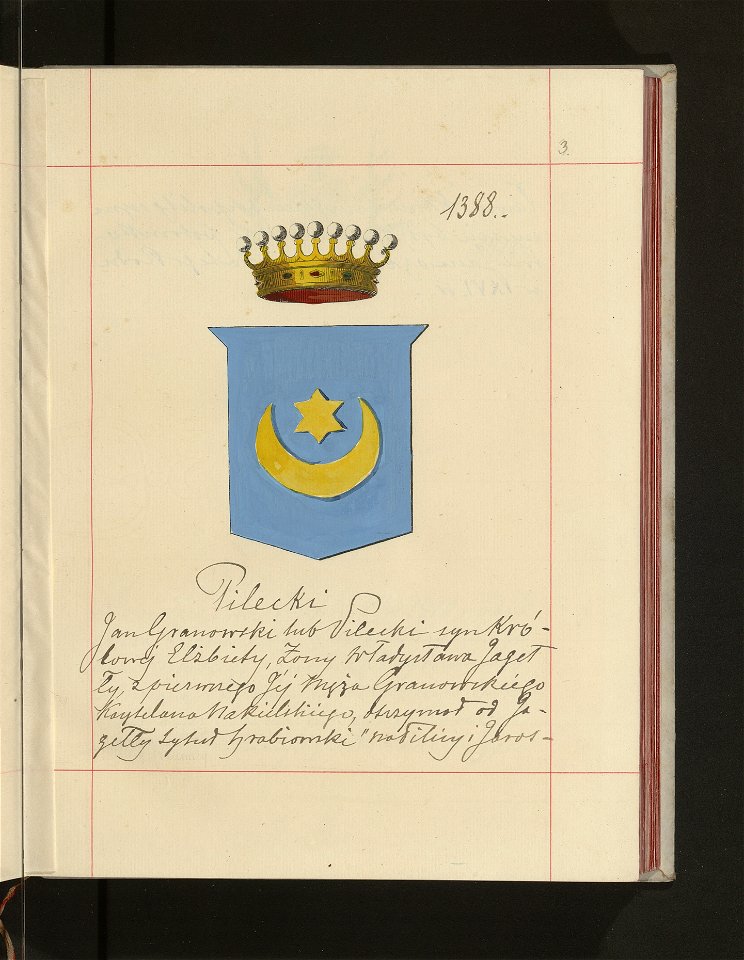 3.
1388.
Pilecki
Jan Granowski lub Pilecki syn Kró-
lowéj Elżbiety, Żony Władysława Jageł
ły, z pierwszego Jéj Męża Granowskiégo
Kasztelana Nakielskiégo, otrzymał od Ja-
gełły tytuł Hrabiowski "na Pilicy i Jaros-